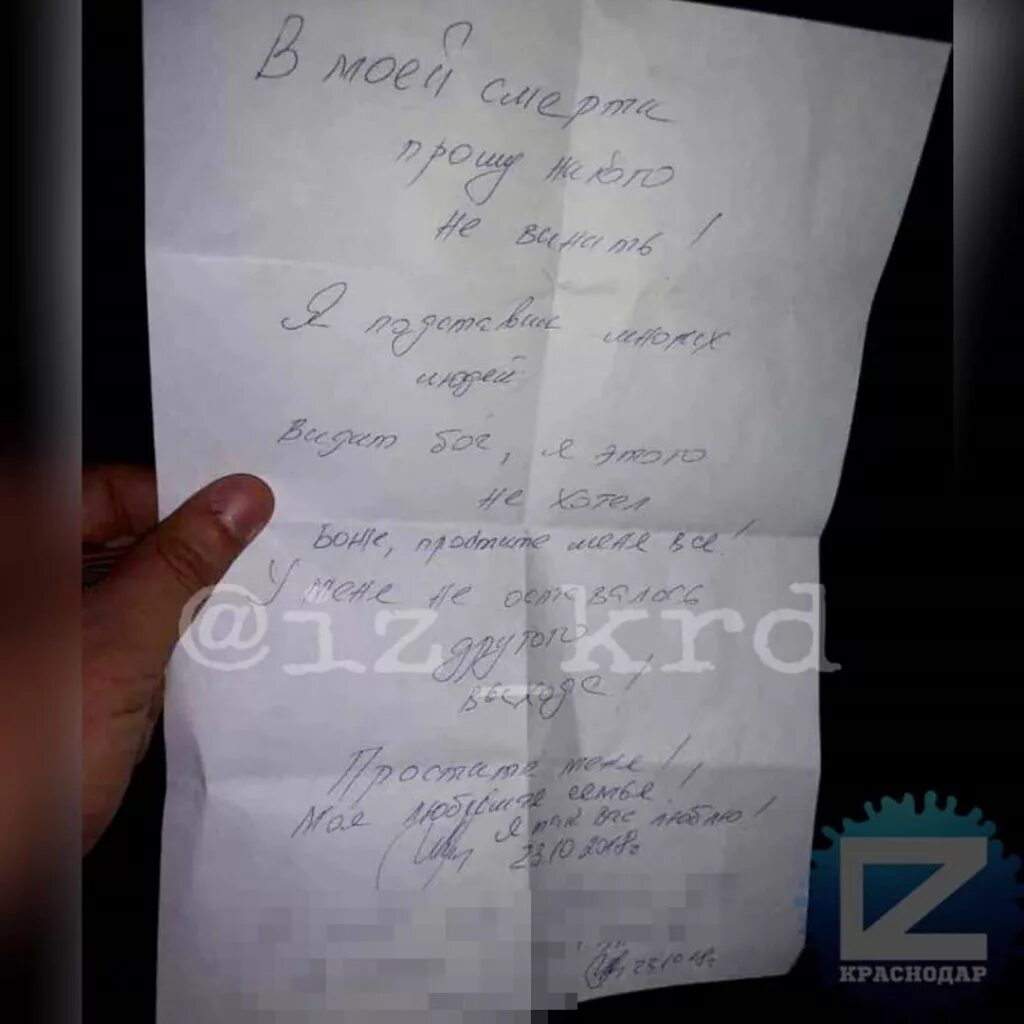 В моей смерти
прошу никого
не винить!
Я подставил многих
людей
Видит бог, я этого
не хотел
Боже, простите меня все!
У меня не оставалось
@iz_krd
другого
выхода!
Простите меня!,
Моя любимая семья!
Я так вас люблю!
23.10.2018г
23.10.18г
КРАСНОДАР